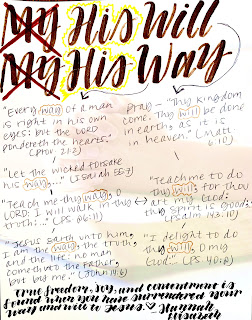 My His Will
My His Way
"Every way of a man
is right in his own
eyes: but the LORD
pondereth the hearts."
(Prov. 21:2)
"Let the wicked forsake
his way..." (Isaiah 55:7)
"Teach me thy way, O
LORD; I will walk in thy
truth:..." (PS 86:11)
"Jesus saith unto him,
I am the way, the truth,
and the life: no man
cometh unto the Father,
but by me." (John 14:6)
Pray - "Thy Kingdom
come. Thy will be done
in earth, as it is
in heaven." (Matt.
6:10)
"Teach me to do
thy will; for thou
art my God:
thy spirit is good;"
(Psalm 143:10)
"I delight to do
thy will, O my
God:" (PS 40:8)
True freedom, joy, and contentment is
found when you have surrendered your
way and will to Jesus.
Hannah